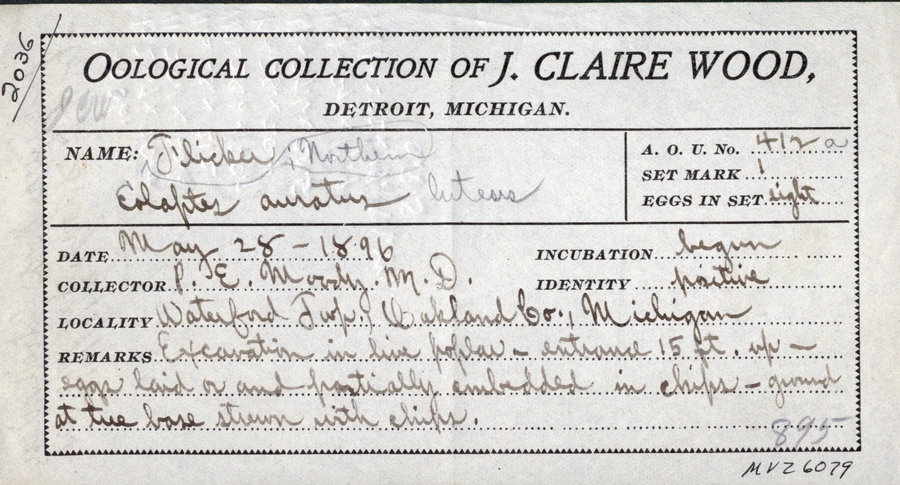 2036
OOLOGICAL COLLECTION OF J. CLAIRE WOOD,
DETROIT, MICHIGAN.
NAME: Flicker, Northern
Colaptes auratus luteus
A. O. U. No. 412 a
SET MARK 1
EGGS IN SET eight
DATE May 28 - 1896
INCUBATION begun
COLLECTOR P. E. Moody. M. D.
IDENTITY positive
LOCALITY Waterford Twp, Oakland Co., Michigan
REMARKS Excavation in live poplar - entrance 15 ft. up -
eggs laid on and partially embedded in chips - ground
at the base strewn with chips.
895
MVZ 6079